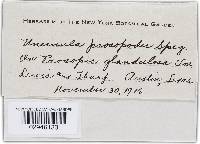 Herbarium of The New York Botanical Garden.
Uncinula prosopodis Speg.
On Prosopis glandulosa Torr.
Austin, Texas.
November 30, 1916
02946133